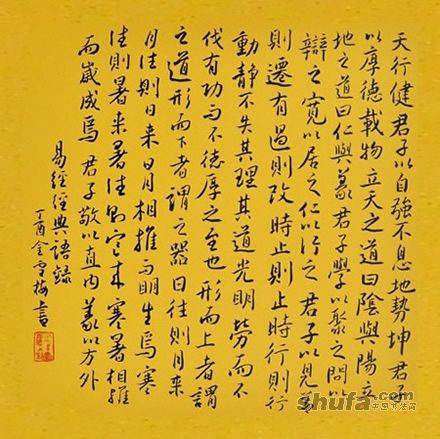 天行健君子以自強不息地勢坤君子
以厚德載物立天之道曰陰與陽立
地之道曰仁與義君子學以聚之問以
辯之寬以居之仁以行之君子以見善
則遷有過則改時止則止時行則行
動靜不失其理其道光明勞而不
伐有功而不德厚之至也形而上者謂
之道形而下者謂之器日往則月來
月往則日來日月相推而明生焉寒
往則暑來暑往則寒來寒暑相推
而歲成焉君子敬以直內義以方外
易經經典語錄
丁酉金雪梅書
shufa.com